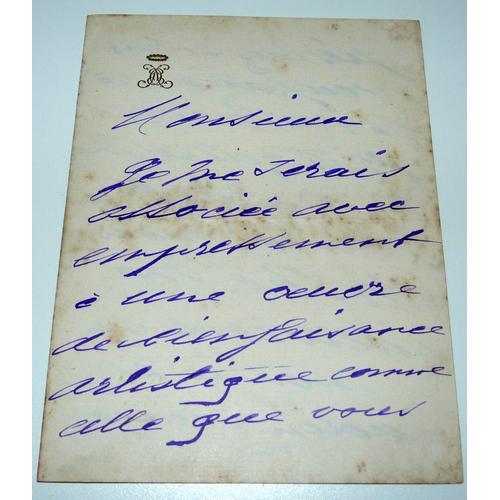 Monsieur
Je me serais
associée avec
empressement
à une œuvre
de bienfaisance
artistique comme
celle que vous